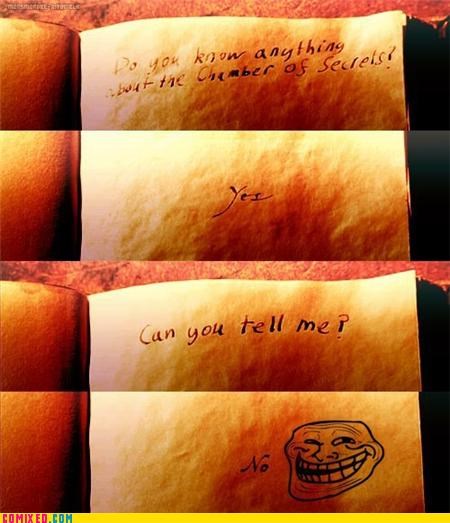 Do you know anything
about the Chamber of Secrets?
Yes
Can you tell me?
No
COMIXED.COM